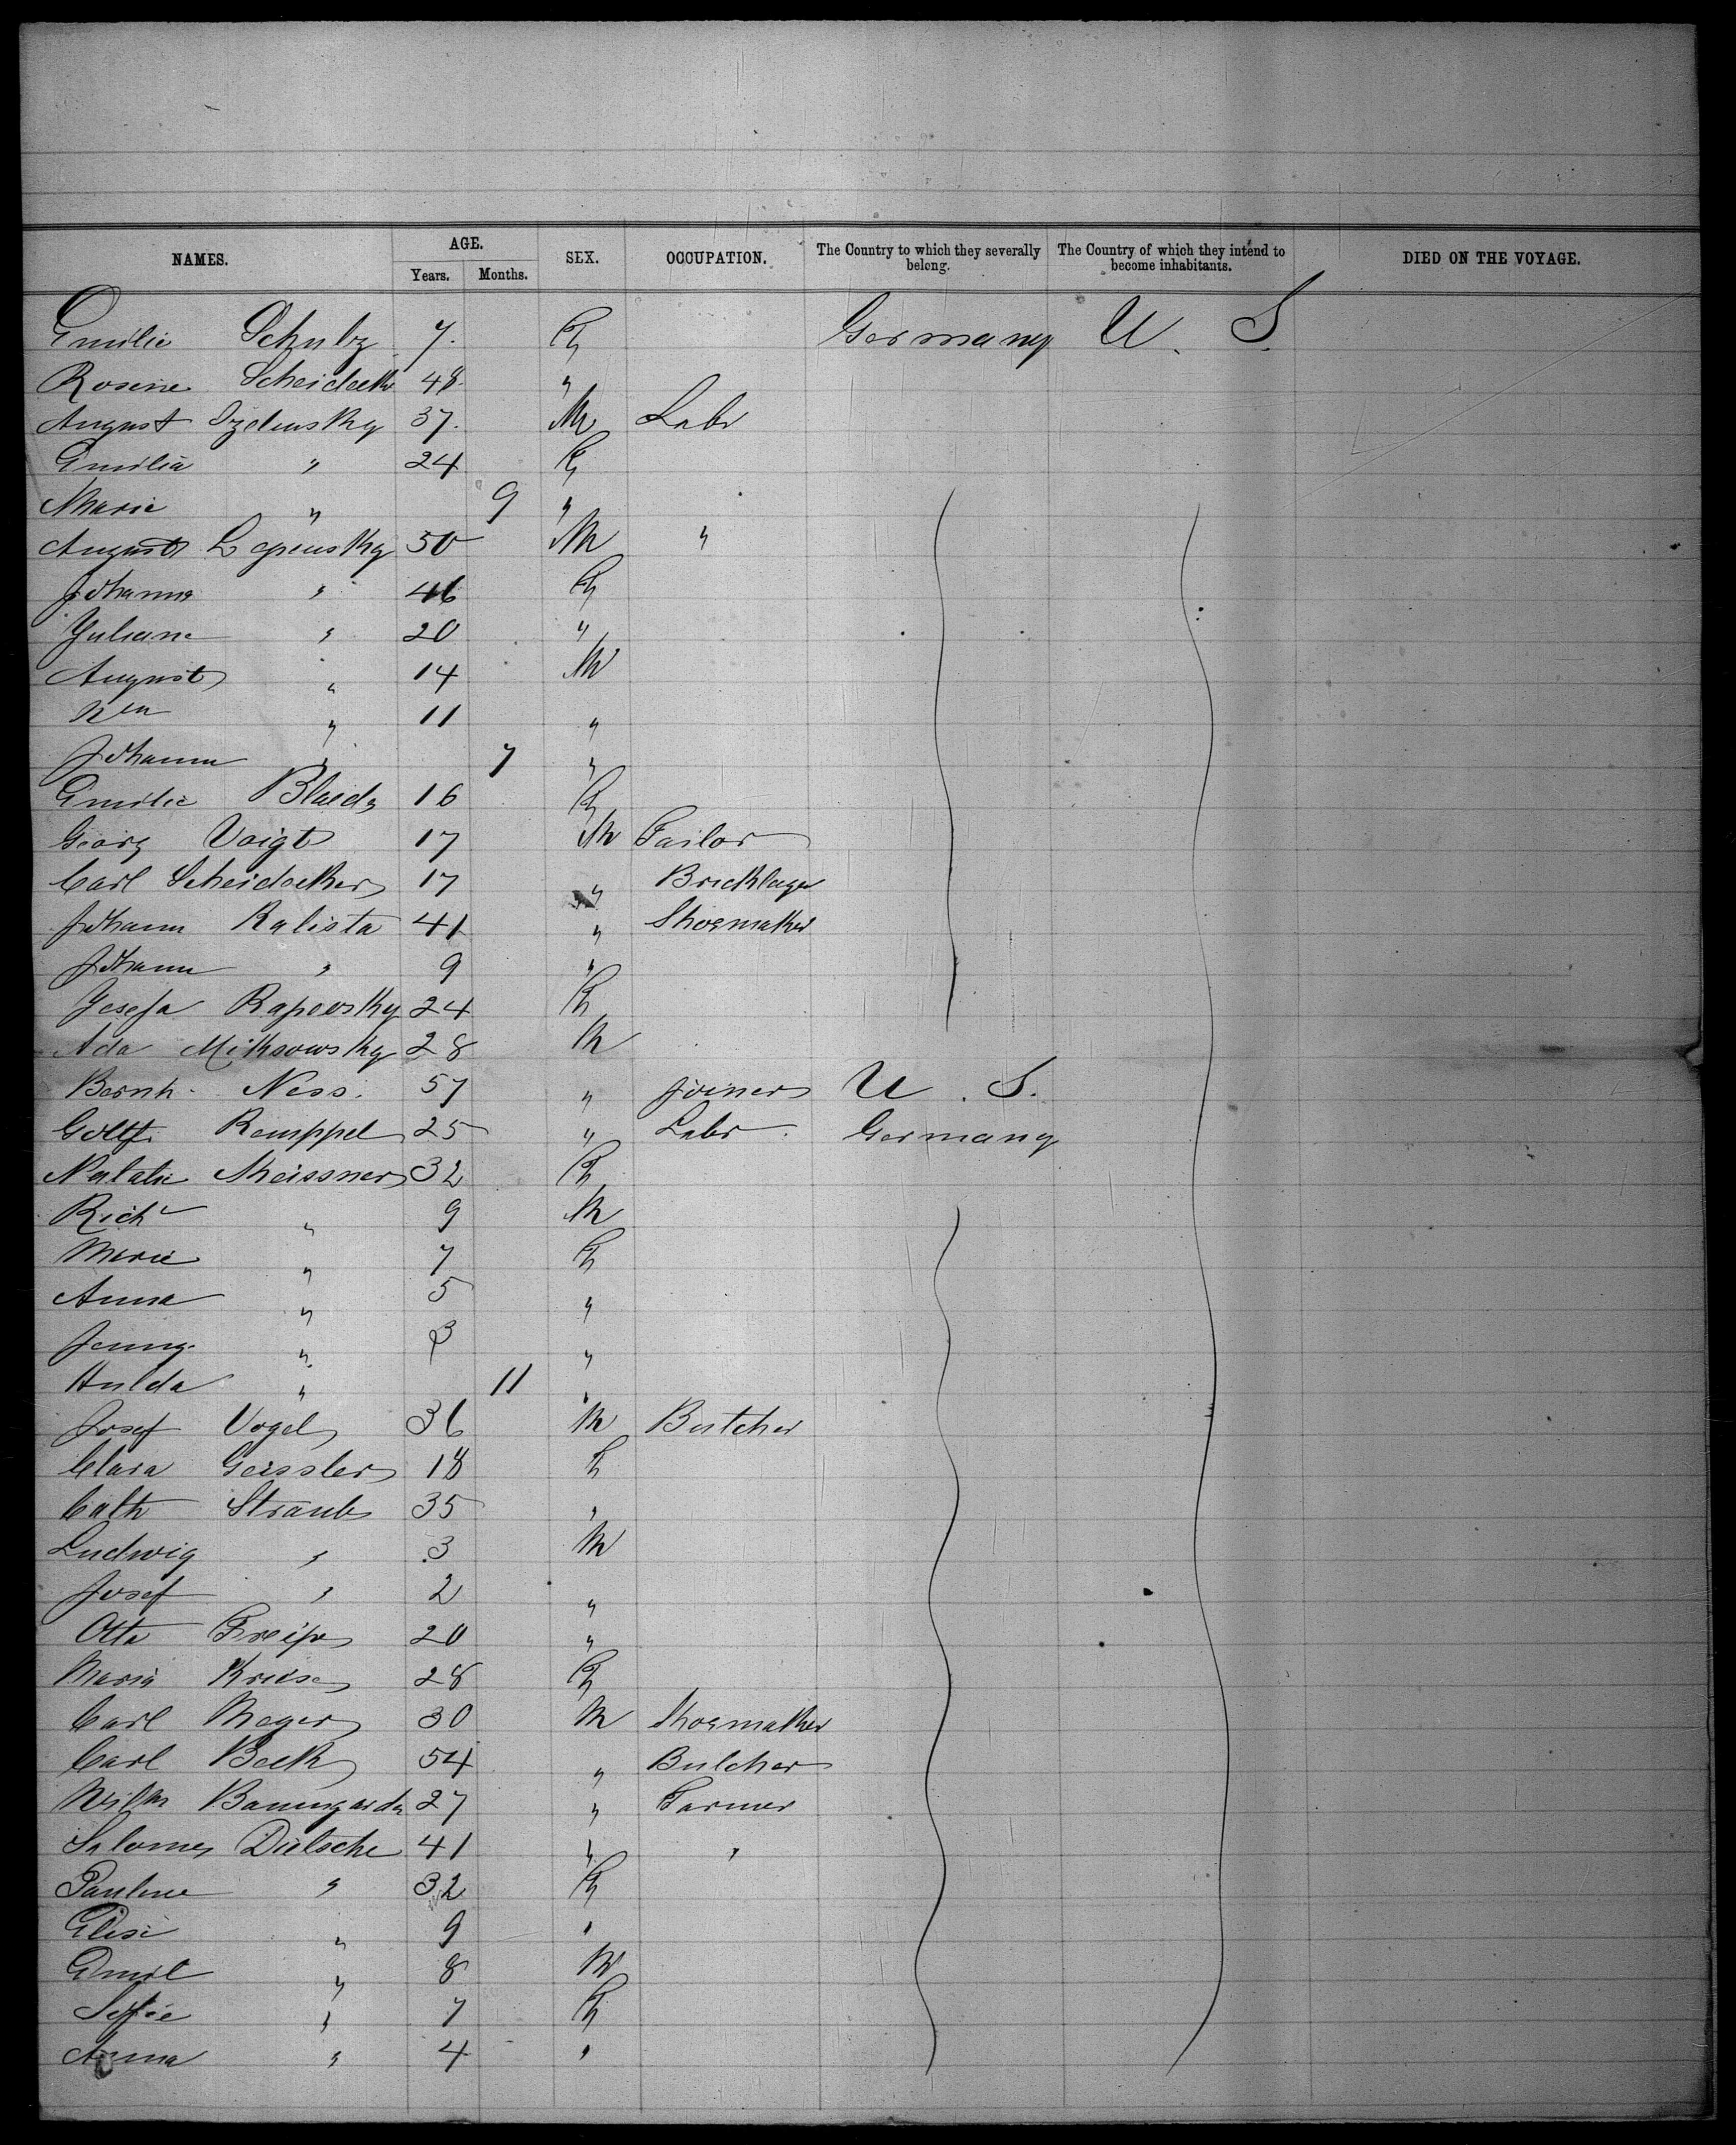 NAMES. AGE. SEX. OCCUPATION. The Country to which they severally belong. The Country of which they intend to become inhabitants. DIED ON THE VOYAGE.
Years. Months.
Emilie Schulz 7. F Germany U. S.
Rosine Scheidecker 48 "
August 37. M Labr
Emilia " 24 F
Marie " 9 "
August Lepensky 50 M "
Johanna " 46 F
Juliane " 20 "
August " 14 M
" 11 "
Johann " 7 "
Emilie 16 F
Georg Voigt 17 M Tailor
Carl Scheidecker 17 " Bricklayer
Johann Kalista 41 " Shoemaker
Johann " 9 "
Josefa 24 F
Ada Miksowsky 28 M
Bernh. Ness. 57 " joiner U. S.
Gottf. Remppel 25 " Labr. Germany
Natalie Meissner 32 F
Richd " 9 M
Marie " 7 F
Anna " 5 "
Jenny " 3 "
Hulda " 11 "
Josef Vogel 36 M Butcher
Clara Geissler 18 F
Cath Straub 35 "
Ludwig " 3 M
Josef " 2 "
Otto 20 "
Maria Kruse 28 F
Carl Meyer 30 M Shoemaker
Carl Beck 54 " Butcher
Wilhm 27 " Farmer
Salomey Dietsche 41 " "
Pauline " 32 F
Elise " 9 "
Emil " 8 M
Sofie " 7 F
Anna " 4 "